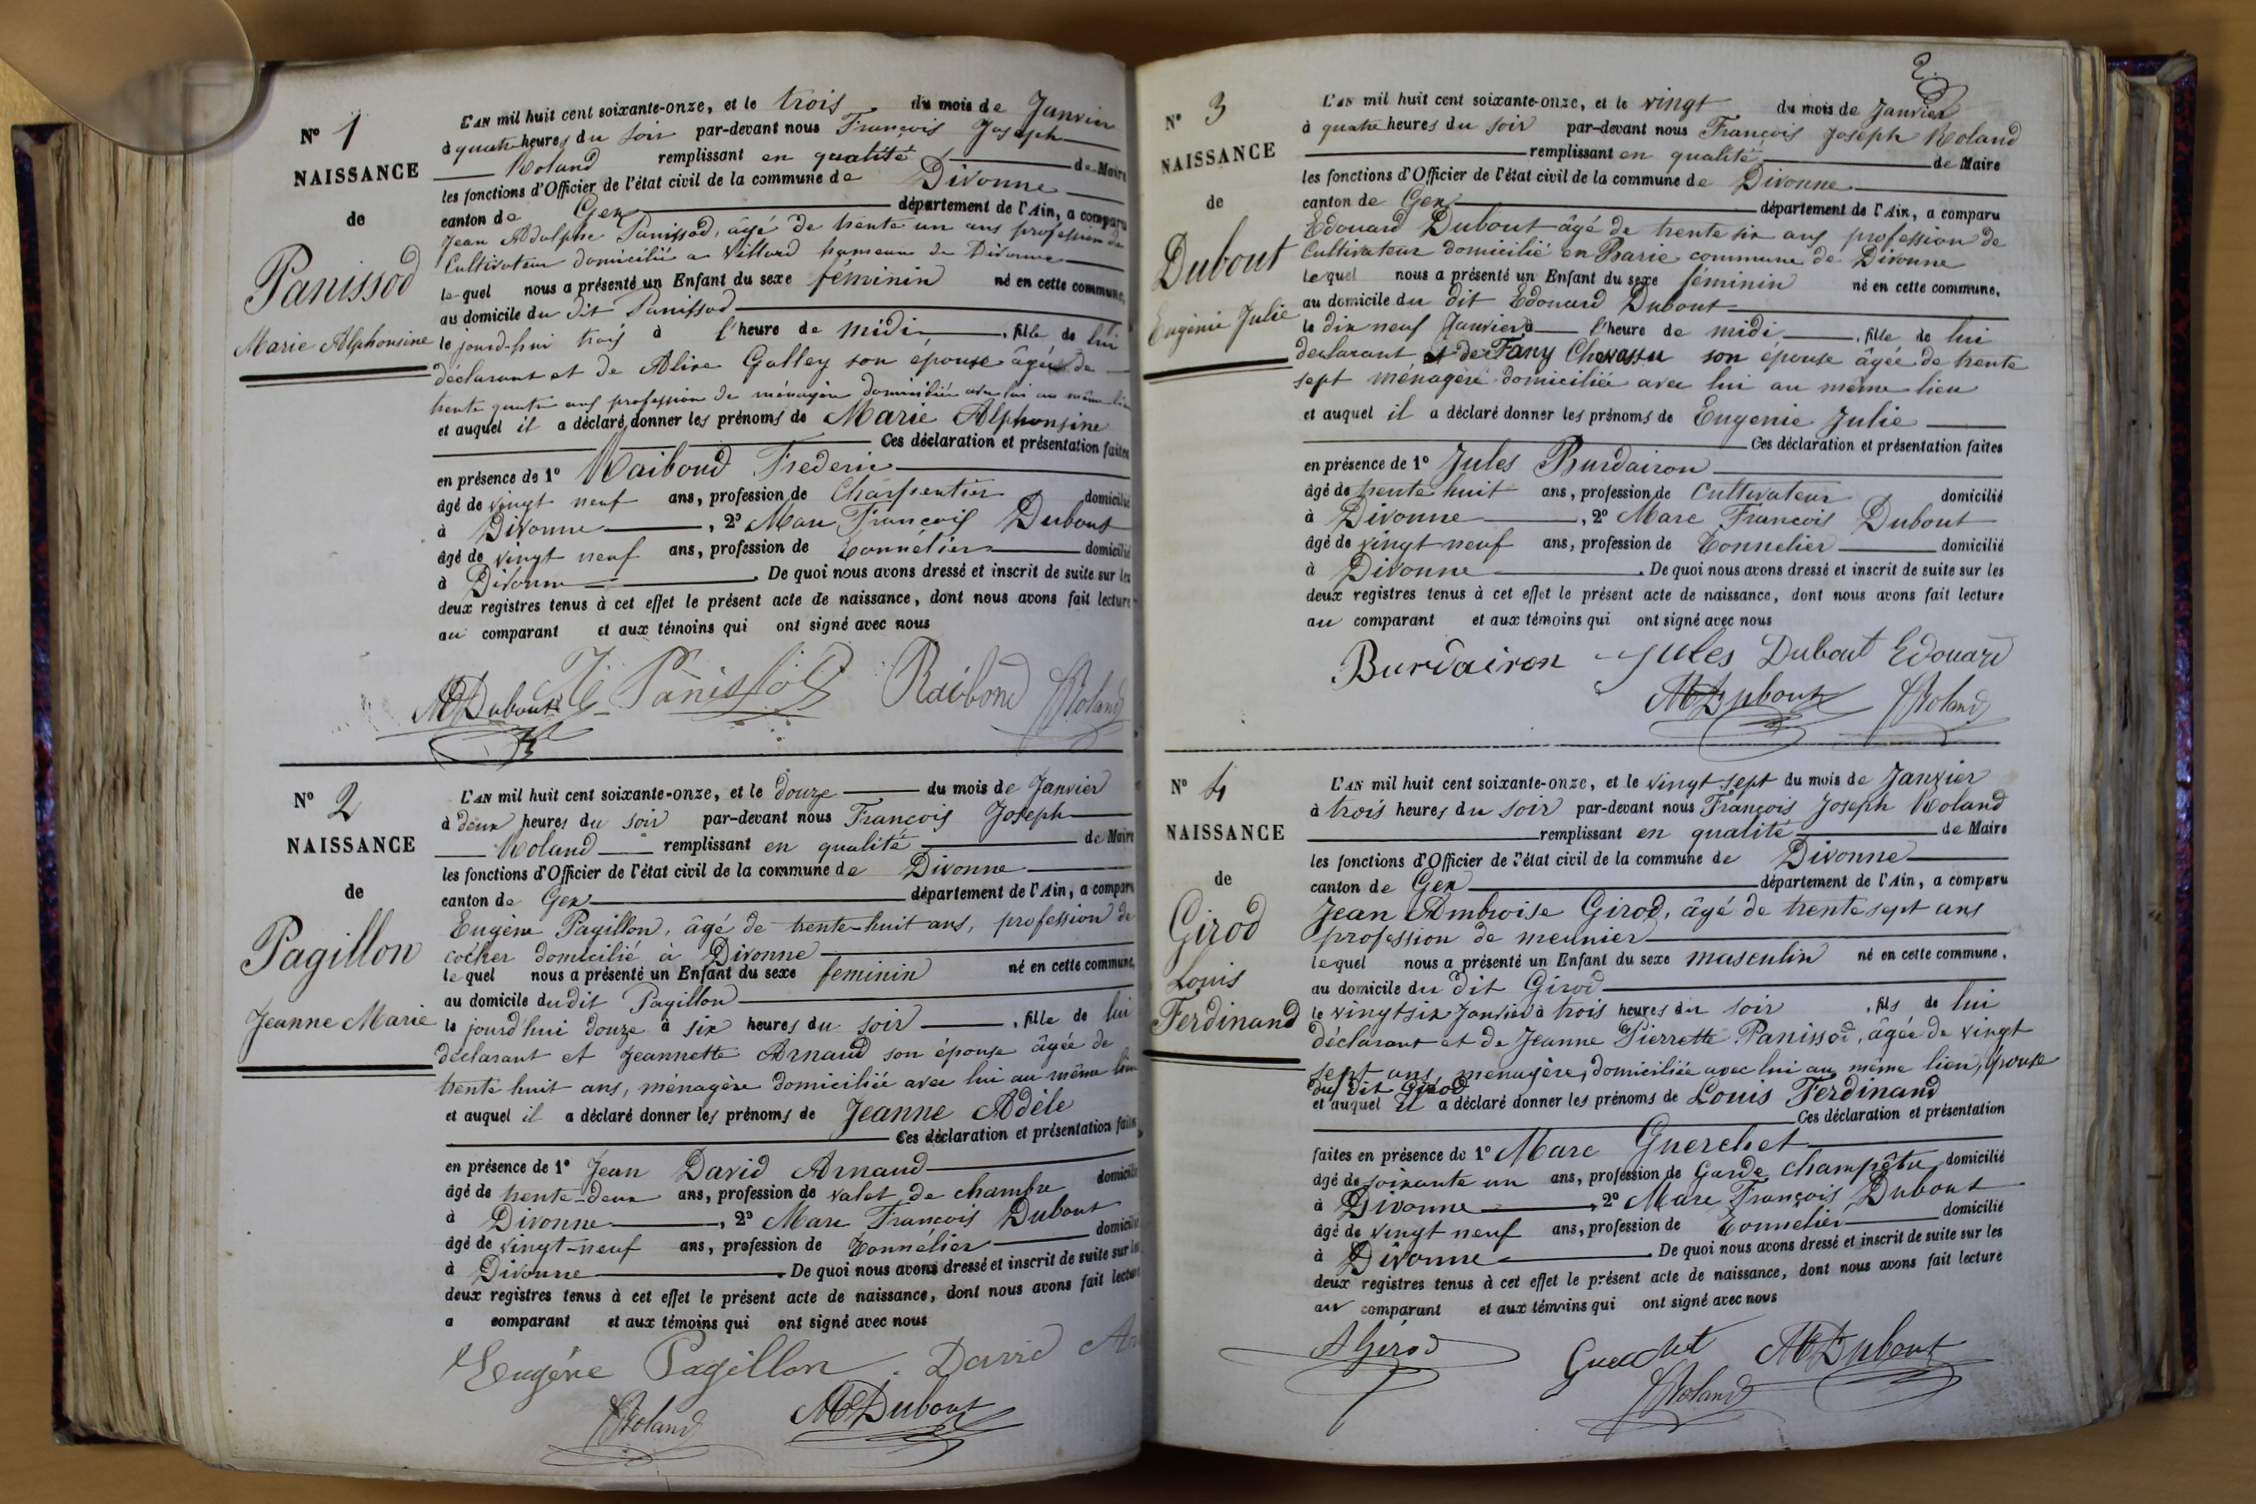 N° 1
NAISSANCE
de
Panissod
Marie Alphonsine
L'AN mil huit cent soixante-onze, et le trois du mois de Janvier
à quatre heures du soir par-devant nous François Joseph
Roland remplissant en qualité de Maire
les fonctions d'Officier de l'état civil de la commune de Divonne
canton de Gex département de l'Ain, a comparu
Jean Adolphe Panissod, âgé de trente un ans profession de
Cultivateur domicilié à Villard hameau de Divonne
lequel nous a présenté un Enfant du sexe féminin né en cette commune,
au domicile du dit Panissod
le jourd'hui trois à l'heure de midi, fille de lui
déclarant et de Alise Galley son épouse âgée de
trente quatre ans profession de ménagère domiciliée avec lui au même lieu
et auquel il a déclaré donner les prénoms de Marie Alphonsine
Ces déclaration et présentation faites
en présence de 1° Raiboud Frederic
âgé de vingt neuf ans, profession de Charpentier domicilié
à Divonne, 2° Marc François Dubout
âgé de vingt neuf ans, profession de Tonnélier domicilié
à Divonne. De quoi nous avons dressé et inscrit de suite sur les
deux registres tenus à cet effet le présent acte de naissance, dont nous avons fait lecture
au comparant et aux témoins qui ont signé avec nous
MDubout Panissod Raiboud Roland
N° 2
NAISSANCE
de
Pagillon
Jeanne Marie
L'AN mil huit cent soixante-onze, et le douze du mois de Janvier
à deux heures du soir par-devant nous François Joseph
Roland remplissant en qualité de Maire
les fonctions d'Officier de l'état civil de la commune de Divonne
canton de Gex département de l'Ain, a comparu
Eugène Pagillon, âgé de trente-huit ans, profession de
cocher domicilié à Divonne
lequel nous a présenté un Enfant du sexe féminin né en cette commune,
au domicile dudit Pagillon
le jourd'hui douze à six heures du soir, fille de lui
déclarant et Jeannette Arnaud son épouse âgée de
trente huit ans, ménagère domiciliée avec lui au même lieu
et auquel il a déclaré donner les prénoms de Jeanne Adèle
Ces déclaration et présentation faites
en présence de 1° Jean David Arnaud
âgé de trente-deux ans, profession de valet de chambre domicilié
à Divonne, 2° Marc François Dubout
âgé de vingt-neuf ans, profession de Tonnélier domicilié
à Divonne. De quoi nous avons dressé et inscrit de suite sur les
deux registres tenus à cet effet le présent acte de naissance, dont nous avons fait lecture
a comparant et aux témoins qui ont signé avec nous
Eugéne Pagillon. David
Roland MDubout
2
N° 3
NAISSANCE
de
Dubout
Eugénie Julie
L'AN mil huit cent soixante-onze, et le vingt du mois de Janvier
à quatre heures du soir par-devant nous François Joseph Roland
remplissant en qualité de Maire
les fonctions d'Officier de l'état civil de la commune de Divonne
canton de Gex département de l'Ain, a comparu
Edouard Dubout âgé de trente six ans profession de
Cultivateur domicilié en commune de Divonne
lequel nous a présenté un Enfant du sexe féminin né en cette commune,
au domicile du dit Edouard Dubout
le dix neuf Janvier à l'heure de midi, fille de lui
déclarant et de Fany Chevassu son épouse âgée de trente
sept ménagère domiciliée avec lui au même lieu
et auquel il a déclaré donner les prénoms de Eugenie Julie
Ces déclaration et présentation faites
en présence de 1° Jules Burdairon
âgé de trente huit ans, profession de Cultivateur domicilié
à Divonne, 2° Marc François Dubout
âgé de vingt neuf ans, profession de Tonnelier domicilié
à Divonne. De quoi nous avons dressé et inscrit de suite sur les
deux registres tenus à cet effet le présent acte de naissance, dont nous avons fait lecture
au comparant et aux témoins qui ont signé avec nous
Burdairon Jules Dubout Edouard
MDubout Roland
N° 4
NAISSANCE
de
Girod
Louis
Ferdinand
L'AN mil huit cent soixante-onze, et le vingt sept du mois de Janvier
à trois heures du soir par-devant nous François Joseph Roland
remplissant en qualité de Maire
les fonctions d'Officier de l'état civil de la commune de Divonne
canton de Gex département de l'Ain, a comparu
Jean Ambroise Girod, âgé de trente sept ans
profession de meunier
lequel nous a présenté un Enfant du sexe masculin né en cette commune,
au domicile du dit Girod
le vingt six Janvier à trois heures du soir, fils de lui
déclarant et de Jeanne Pierrette Panissod, âgée de vingt
sept ans, ménagère, domiciliée avec lui au même lieu, épouse
du dit Girod
et auquel il a déclaré donner les prénoms de Louis Ferdinand
Ces déclaration et présentation
faites en présence de 1° Marc Guerchet
âgé de soixante un ans, profession de Garde champêtre domicilié
à Divonne, 2° Marc François Dubout
âgé de vingt neuf ans, profession de Tonnelier domicilié
à Divonne. De quoi nous avons dressé et inscrit de suite sur les
deux registres tenus à cet effet le présent acte de naissance, dont nous avons fait lecture
au comparant et aux témoins qui ont signé avec nous
AGirod Guerchet MDubout
Roland